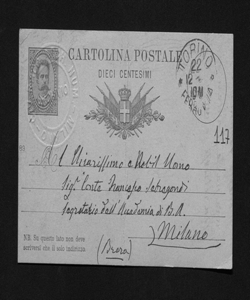 CARTOLINA POSTALE
DIECI CENTESIMI
TORINO
22
12
10M
FERROVIA
117
Al Chiarissimo e Nobil Uomo
Sig. Conte Francesco
Segretario dell'Accademia di B.A.
Milano
(Brera)
NB. Su questo lato non deve
scriversi che il solo indirizzo